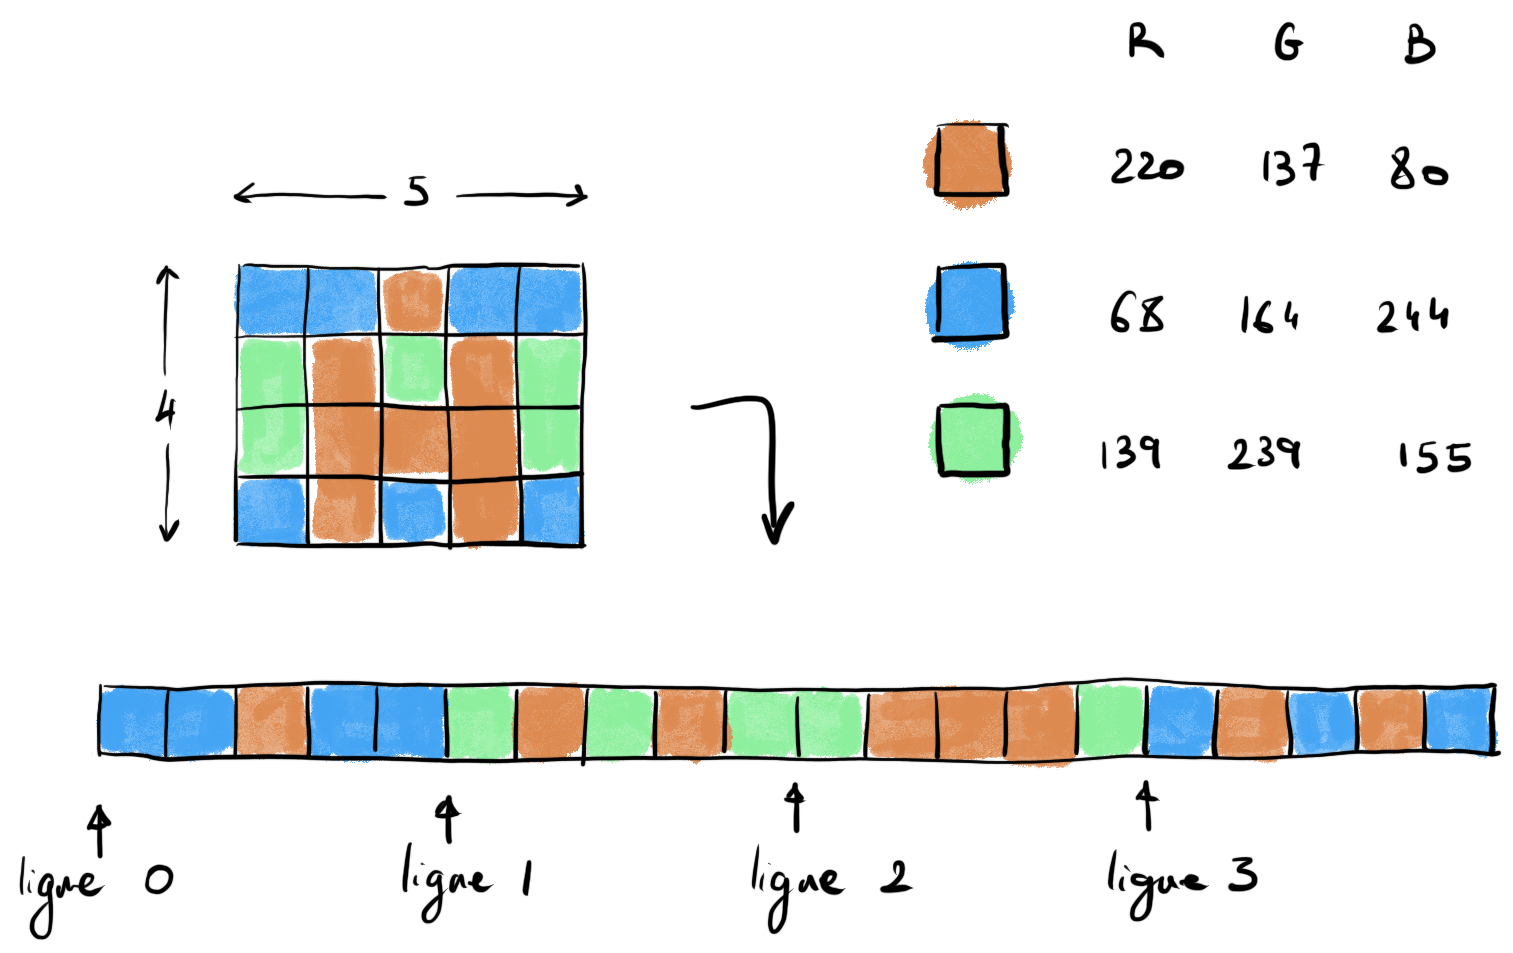 R G B
220 137 80
5
68 164 244
4
139 239 155
ligne 0 ligne 1 ligne 2 ligne 3